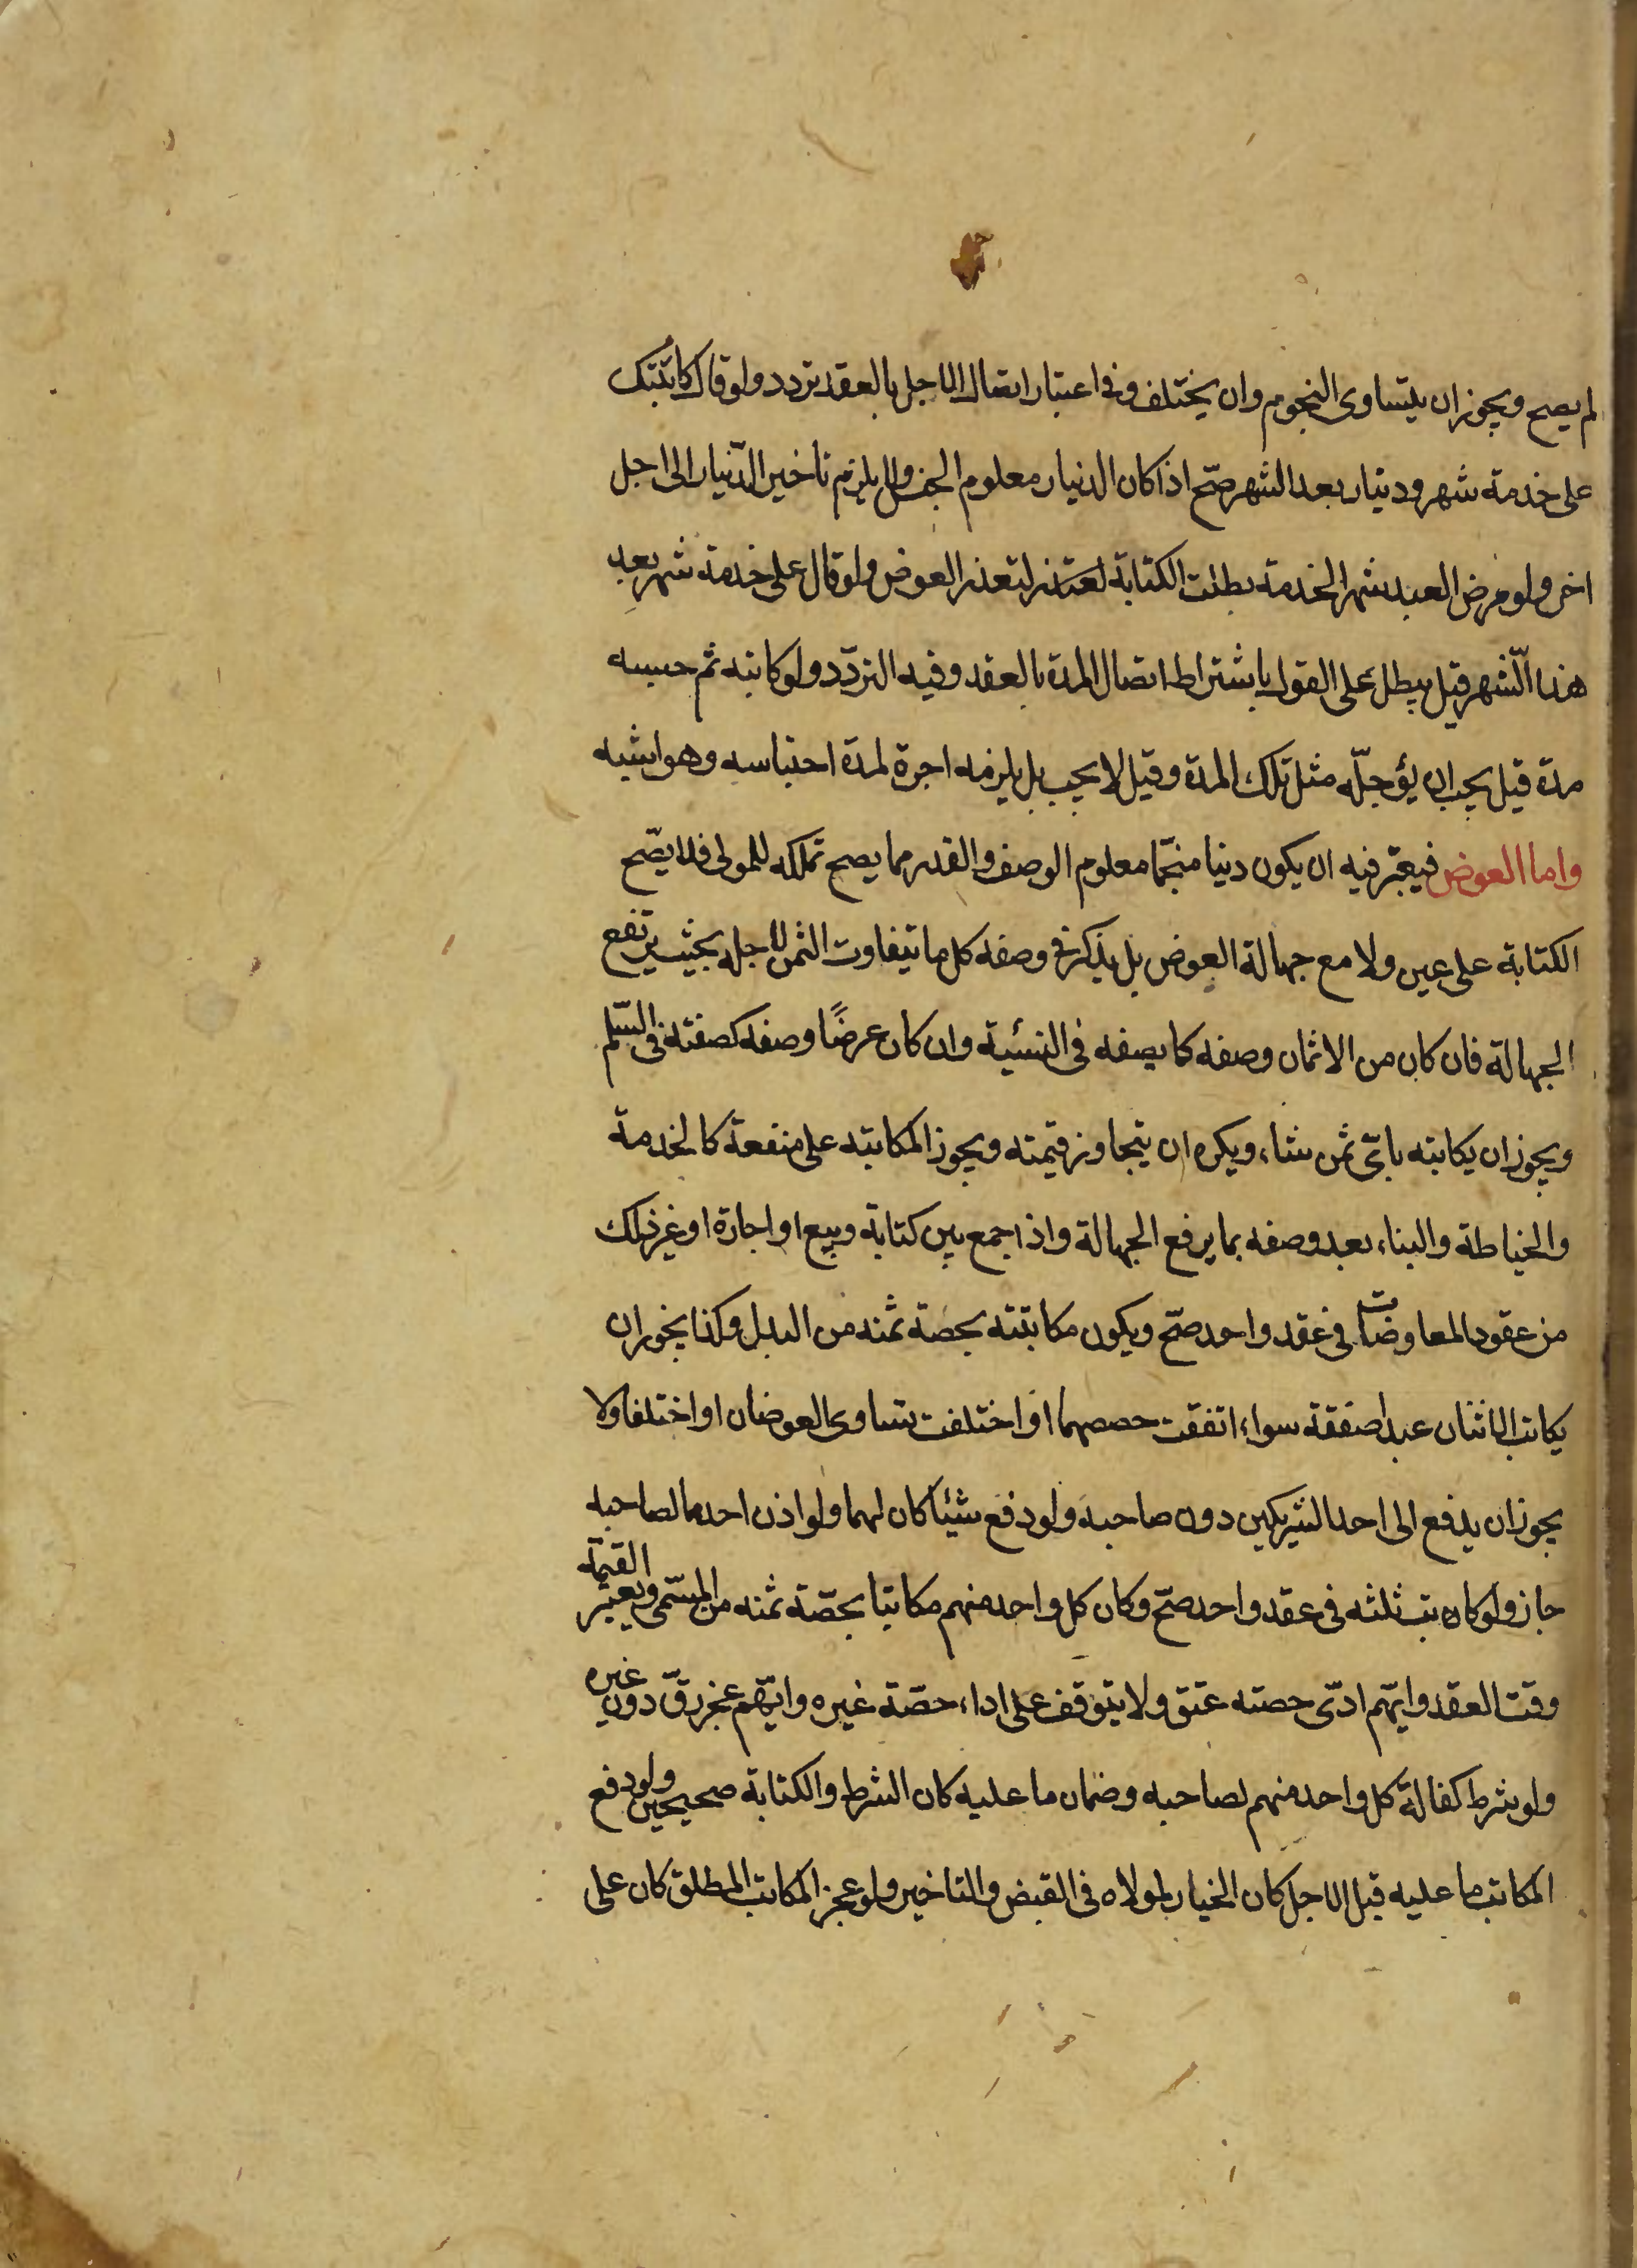 لم يصح ويجوز ان يتساوى النجوم وان يختلف وفى اعتبار اتصال الاجل بالعقد تردد ولو قال كاتبتك
على خدمة شهر ودينار بعد الشهر صحّ اذا كان الدنيار معلوم الجنس ولا يلزم تاخير الدّنيار الى اجل
اخر ولو مرض العبد شهر الخدمة بطلت الكتابة لتعذر العوض ولو قال على خدمة شهر بعد
هذا الّشهر قيل يبطل على القول باشتراط اتصال المدة بالعقد وفيه التردّد ولو كاتبه ثم حبسه
مدة قيل يجب ان يؤجلّه مثل تلك المدة وقيل لا يجب بل يلزمه اجرة لمدة احتباسه وهو اشبه
واما العوض فيعتبر فيه ان يكون دينا منجّما معلوم الوصف والقدر مما يصح تملكه للمولى فلا يصّح
الكتابة على عين ولا مع جهالة العوض بل يذكر فى وصفه كل ما يتفاوت الثمن لاجله بحيث يرتفع
الجهالة فان كان من الاثمان وصفه كما يصفه فى النسئية وان كان عرضًا وصفه كصفته فى السّلم
ويجوز ان يكاتبه باىّ ثمن شاء ويكره ان يتجاوز قيمته ويجوز المكاتبه على منفعة كالخدمة
والخياطة والبناء بعد وصفه بما يرفع الجهالة واذا جمع بين كتابة وبيع او اجارة او غير ذلك
من عقود المعاوضات فى عقد واحد صحّ ويكون مكاتبته بحصة ثمنه من البدل وكذا يجوز ان
يكاتب الاثنان عبدا صفقة سواء اتفقت حصصهما او اختلفت تساوى العوضان او اختلفا ولا
يجوز ان يدفع الى احد الشريكين دون صاحبه ولو دفع شيئا كان لهما ولو اذن احدهما لصاحبه
جاز ولو كاتب ثلثه فى عقد واحد صحّ وكان كل واحد منهم مكاتبا بحصّة ثمنه من المسّمى ويعتبر القيمة
وقت العقد وايّهم ادّى حصته عتق ولا يتوقف على اداء حصّة غيره وايّهم عجز رقّ دون غيره
ولو شرط كفالة كل واحد منهم لصاحبه وضمان ما عليه كان الشرط والكتابة صحيحين ولو دفع
المكاتب ما عليه قبل الاجل كان الخيار لمولاه فى القبض والتاخير ولو عجز المكاتب المطلق كان على